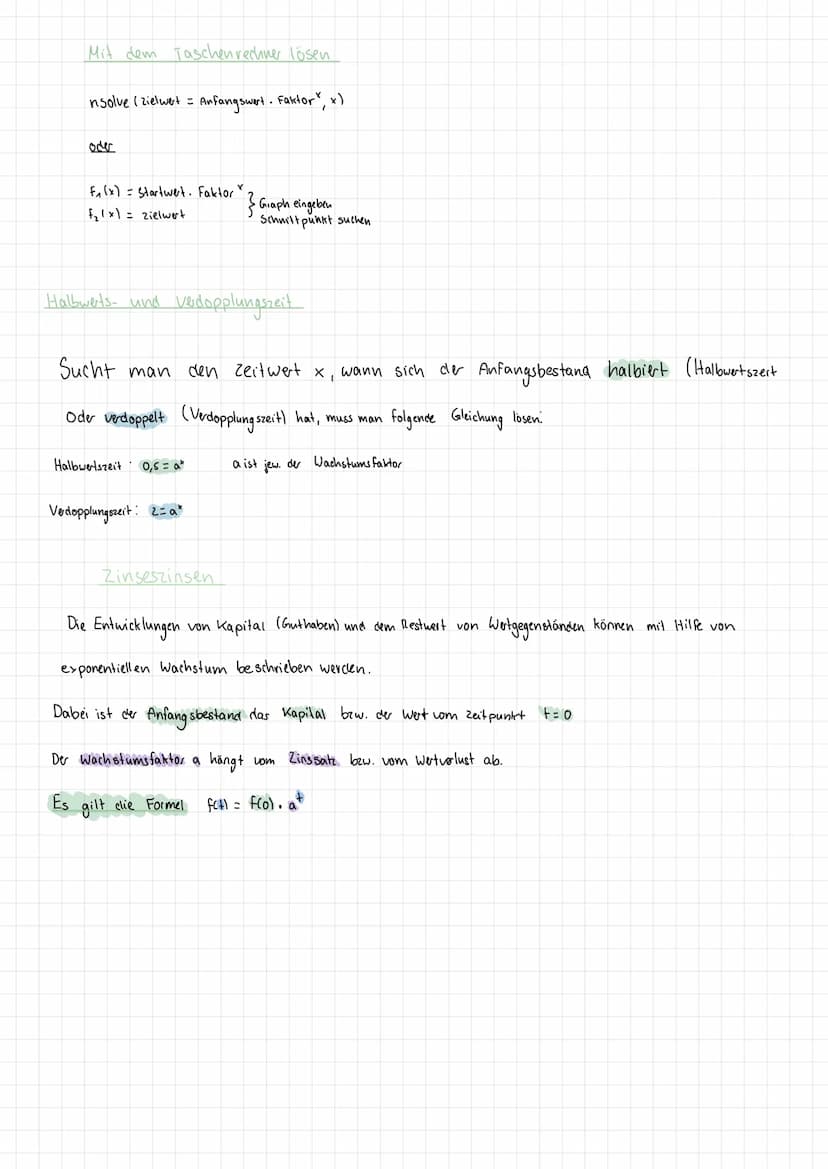 Mit dem Taschenrechner lösen
nsolve (Zielwert = Anfangswert · Faktorˣ, x)
oder
f₁(x) = Startwert · Faktorˣ } Graph eingeben
f₂(x) = Zielwert } Schnittpunkt suchen
Halbwerts- und Verdopplungszeit
Sucht man den Zeitwert x, wann sich der Anfangsbestand halbiert (Halbwertszeit
Oder verdoppelt (Verdopplungszeit) hat, muss man folgende Gleichung lösen:
Halbwertszeit : 0,5 = aˣ a ist jew. der Wachstumsfaktor
Verdopplungszeit : 2 = aˣ
Zinseszinsen
Die Entwicklungen von Kapital (Guthaben) und dem Restwert von Wertgegenständen können mit Hilfe von
exponentiellen Wachstum beschrieben werden.
Dabei ist der Anfangsbestand das Kapital bzw. der Wert vom Zeitpunkt t = 0
Der Wachstumsfaktor a hängt vom Zinssatz bzw. vom Wertverlust ab.
Es gilt die Formel f(t) = f(0) · aᵗ